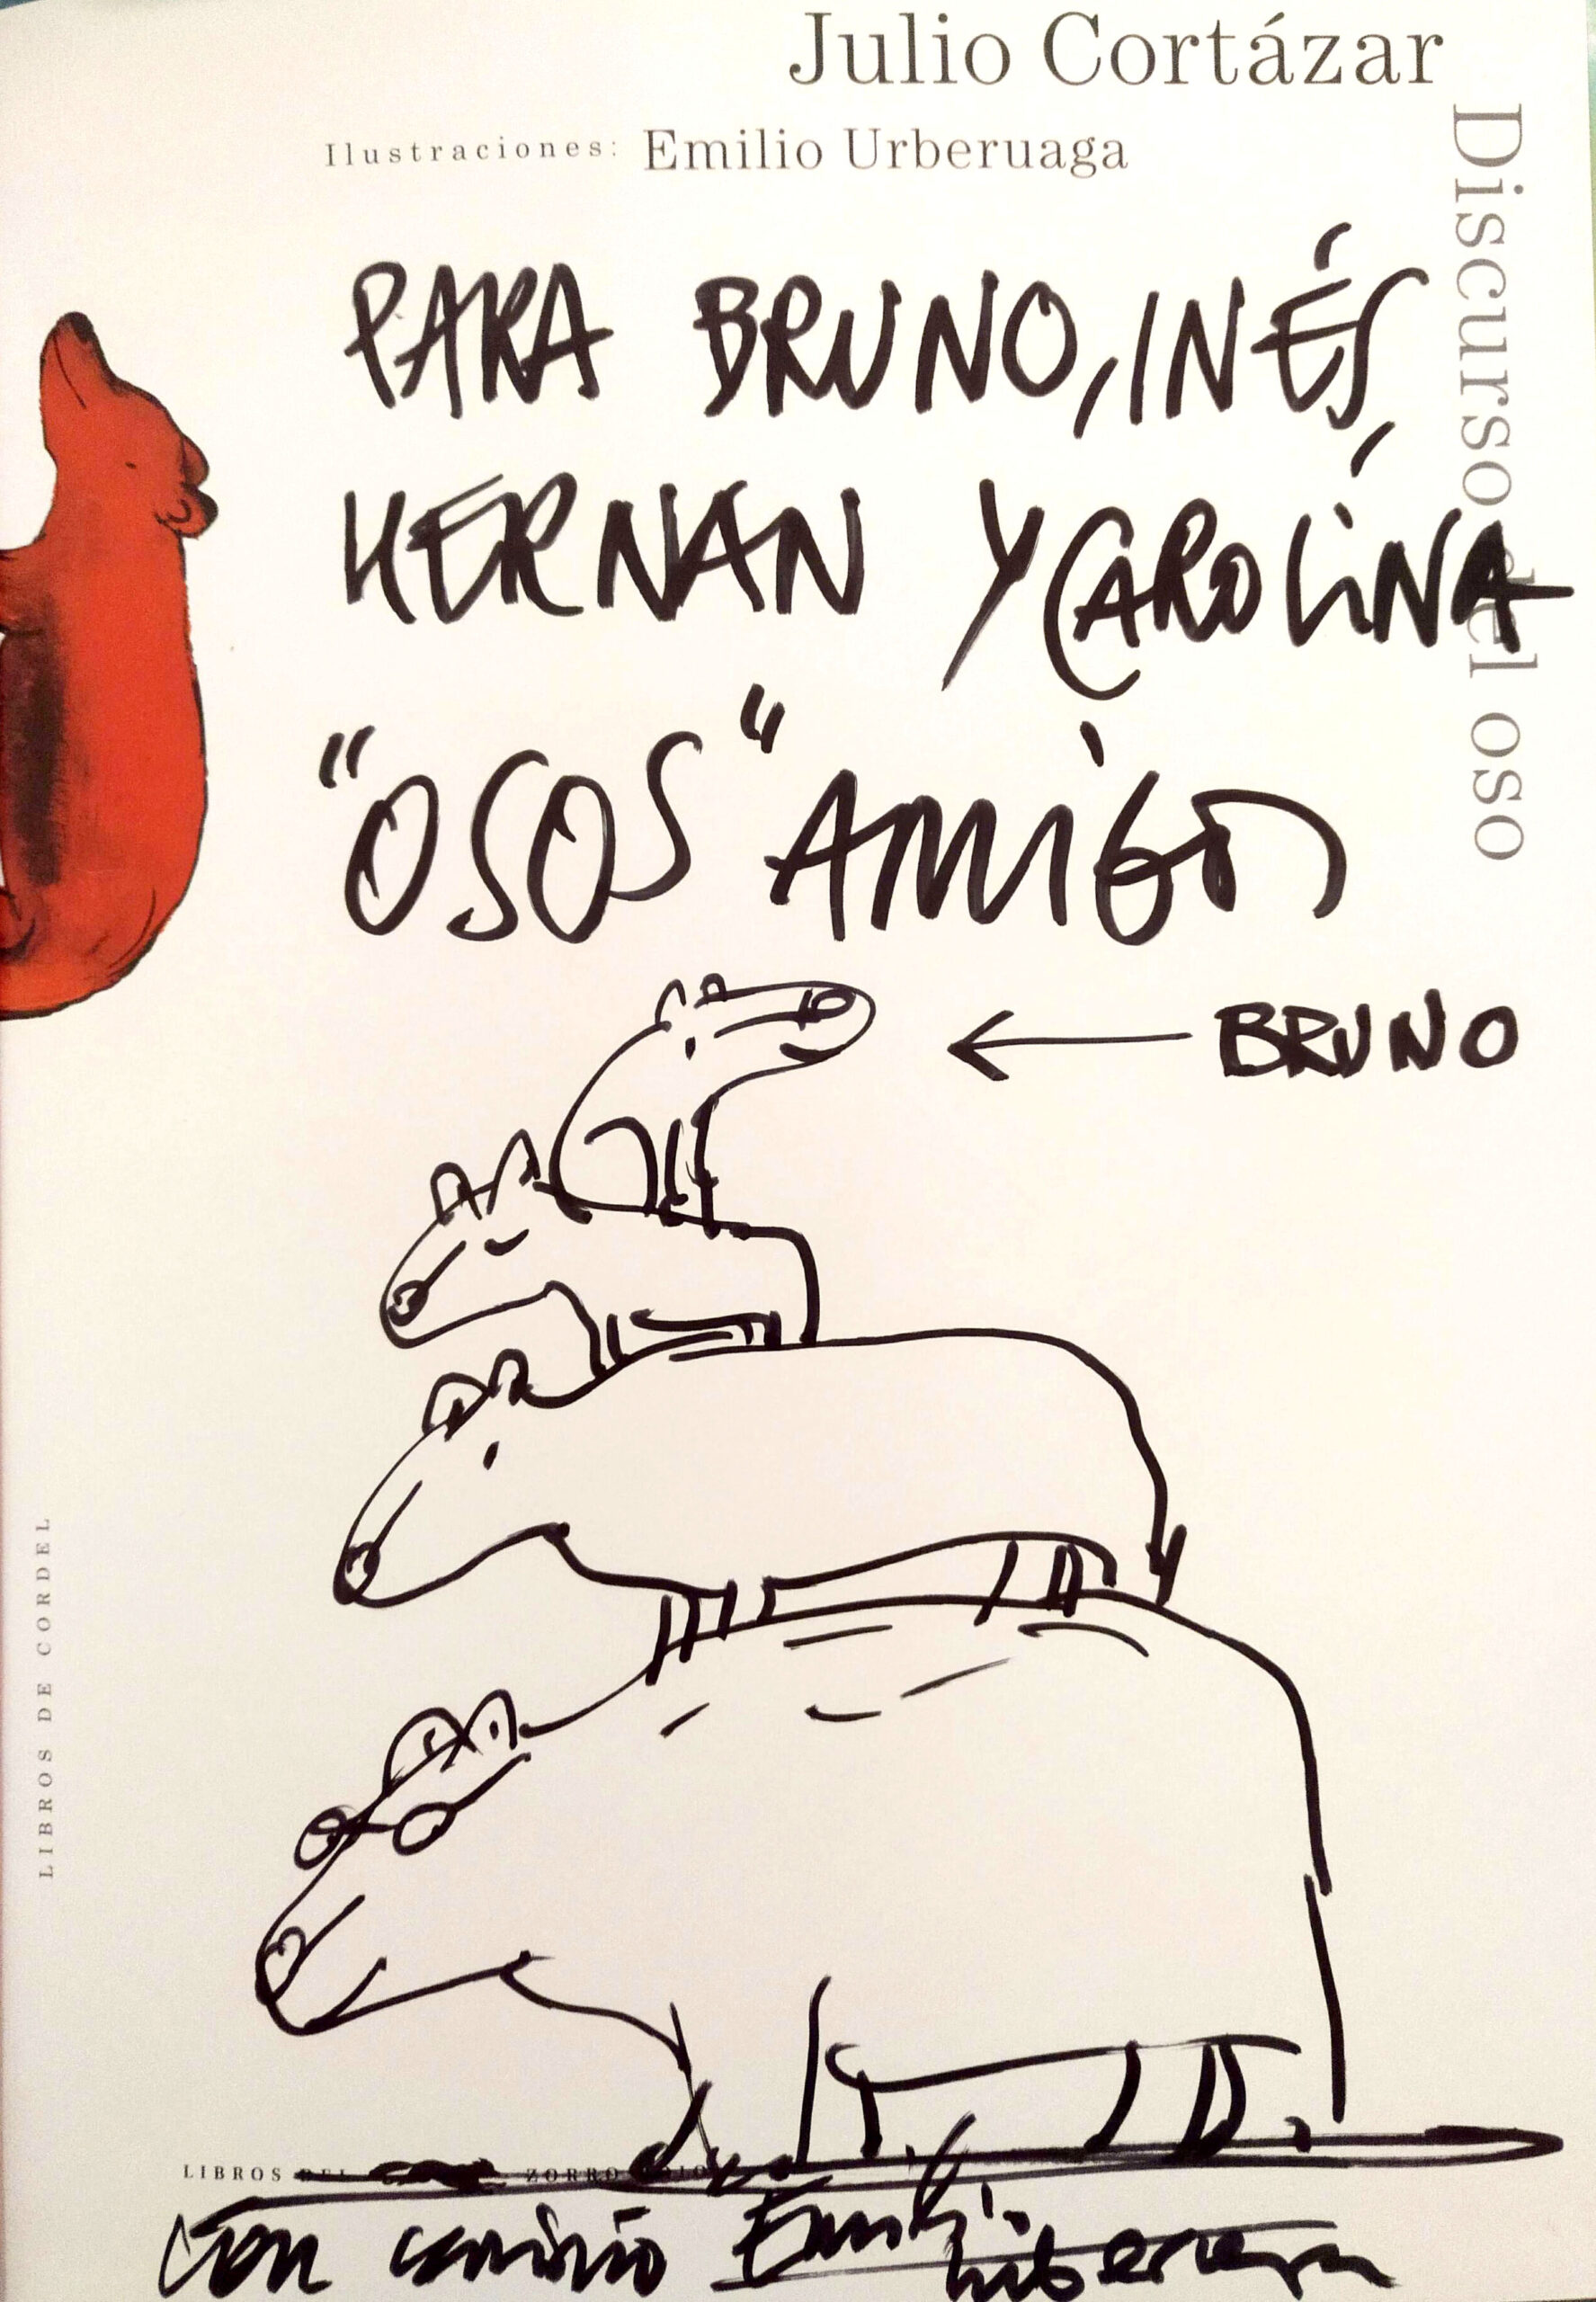 Julio Cortázar
Ilustraciones: Emilio Urberuaga
Discurso del oso
PARA BRUNO, INÉS,
HERNAN Y CAROLINA
"OSOS" AMIGOS
BRUNO
LIBROS DE CORDEL
LIBROS DEL ZORRO ROJO
con cariño Emilio Urberuaga